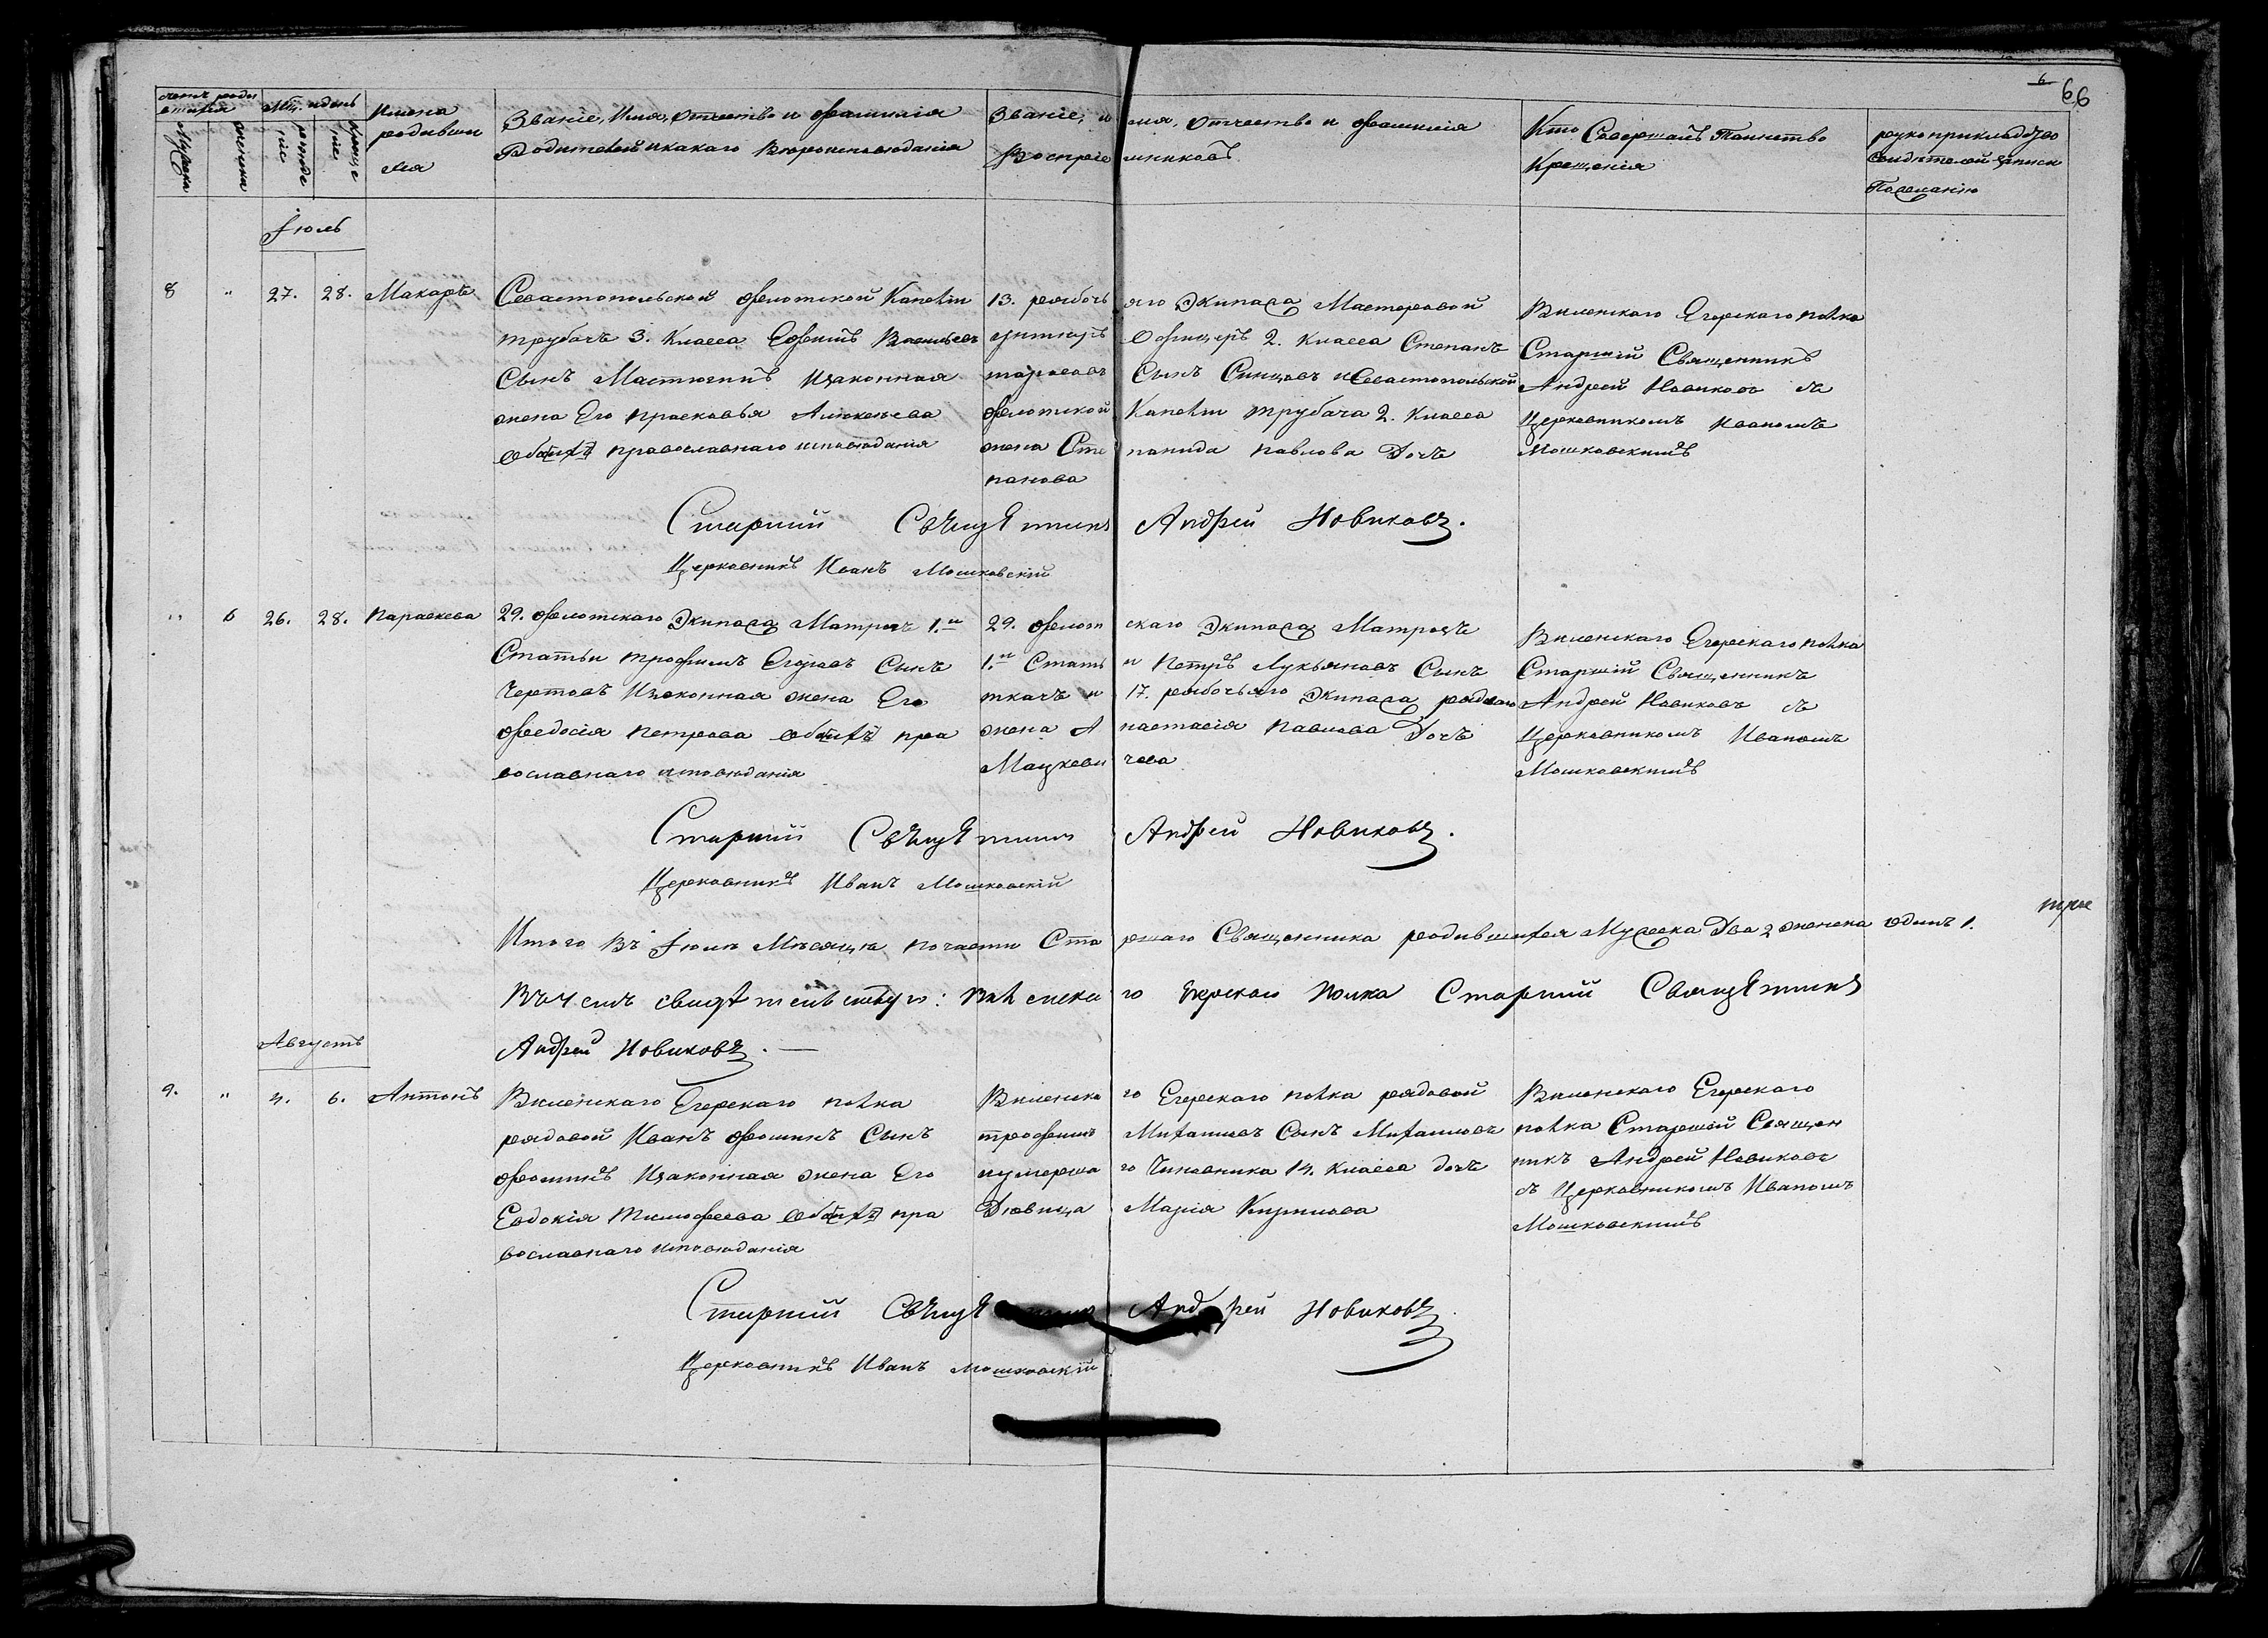 6
66
счетъ роди
вшихся
Мц. и день
Мужеска
женска
рожде
нія
креще
нія
Имена
родивши
хся
Званіе, Имя, Отчество и фамилія
Родителей и какаго Вѣроисповѣданія
Званіе, имя, Отчество и фамилія
Воспріемниковъ.
Кто Совершалъ Таинство
Крещенія
рукоприкладство
свидѣтелей записи
По желанію
Іюль
8 " 27. 28. Макарѣ
Севастопольской флотской Капеліи
трубачъ 3. Класса Ефимъ Васильевъ
Сынъ Мастюгинъ Изаконная
жена Его Прасковья Алексѣева
Обоихъ православнаго исповѣданія
13. рабочьяго Экипажа Мастеровой
Офицеръ 2. Класса Степанъ
Сынъ Синцовъ и Севастопольской
флотской Капеліи трубача 2. Класса
жена Степанида Павлова Дочь
панова
Виленскаго Егерскаго полка
Старшій Священникъ
Андрей Новиковъ съ
Церковникомъ Иваномъ
Мошковскимъ
Старшій Священникъ Андрей Новиковъ.
Церковникъ Иванъ Мошковскій
" 6 26. 28. Параскева
29. флотскаго Экипажа Матрозъ 1.й
Статьи Трофимъ Егоровъ Сынъ
Чертовъ Изаконная жена Его
Феодосія Петрова Обоихъ пра
вославнаго исповѣданія
29. флотскаго Экипажа Матрозъ
1.й Статьи Петръ Лукьяновъ Сынъ
ткачъ и 17. рабочьяго Экипажа рядоваго
жена Анастасія Павлова Дочь
Мацкевичева
Виленскаго Егерскаго полка
Старшій Священникъ
Андрей Новиковъ съ
Церковникомъ Иваномъ
Мошковскимъ
Старшій Священникъ Андрей Новиковъ.
Церковникъ Иванъ Мошковскій
Итого Въ Іюлѣ Мѣсяцѣ по части Старшаго Священника родившихся Мужеска Два 2 женска один 1.
трое
Въ чемъ свидѣтельствую: Виленскаго Егерскаго Полка Старшій Священникъ
Андрей Новиковъ. —
Августъ
9. " 4. 6. Антонъ
Виленскаго Егерскаго полка
рядовой Иванъ Фоминъ Сынъ
Фоминъ Изаконная жена Его
Евдокія Тимофеева Обоихъ пра
вославнаго исповѣданія
Виленскаго Егерскаго полка рядовой
Трофимъ Михаиловъ Сынъ Михаиловъ
и умершаго Чиновника 14. класса дочь
Дѣвица Марія Кирилова
Виленскаго Егерскаго
полка Старшій Священ
никъ Андрей Новиковъ
съ Церковникомъ Иваномъ
Мошковскимъ
Старшій Священникъ Андрей Новиковъ
Церковникъ Иванъ Мошковскій